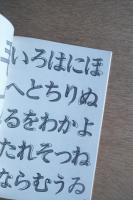 いろはにほ
へとちりぬ
るをわかよ
たれそつね
ならむうゐ